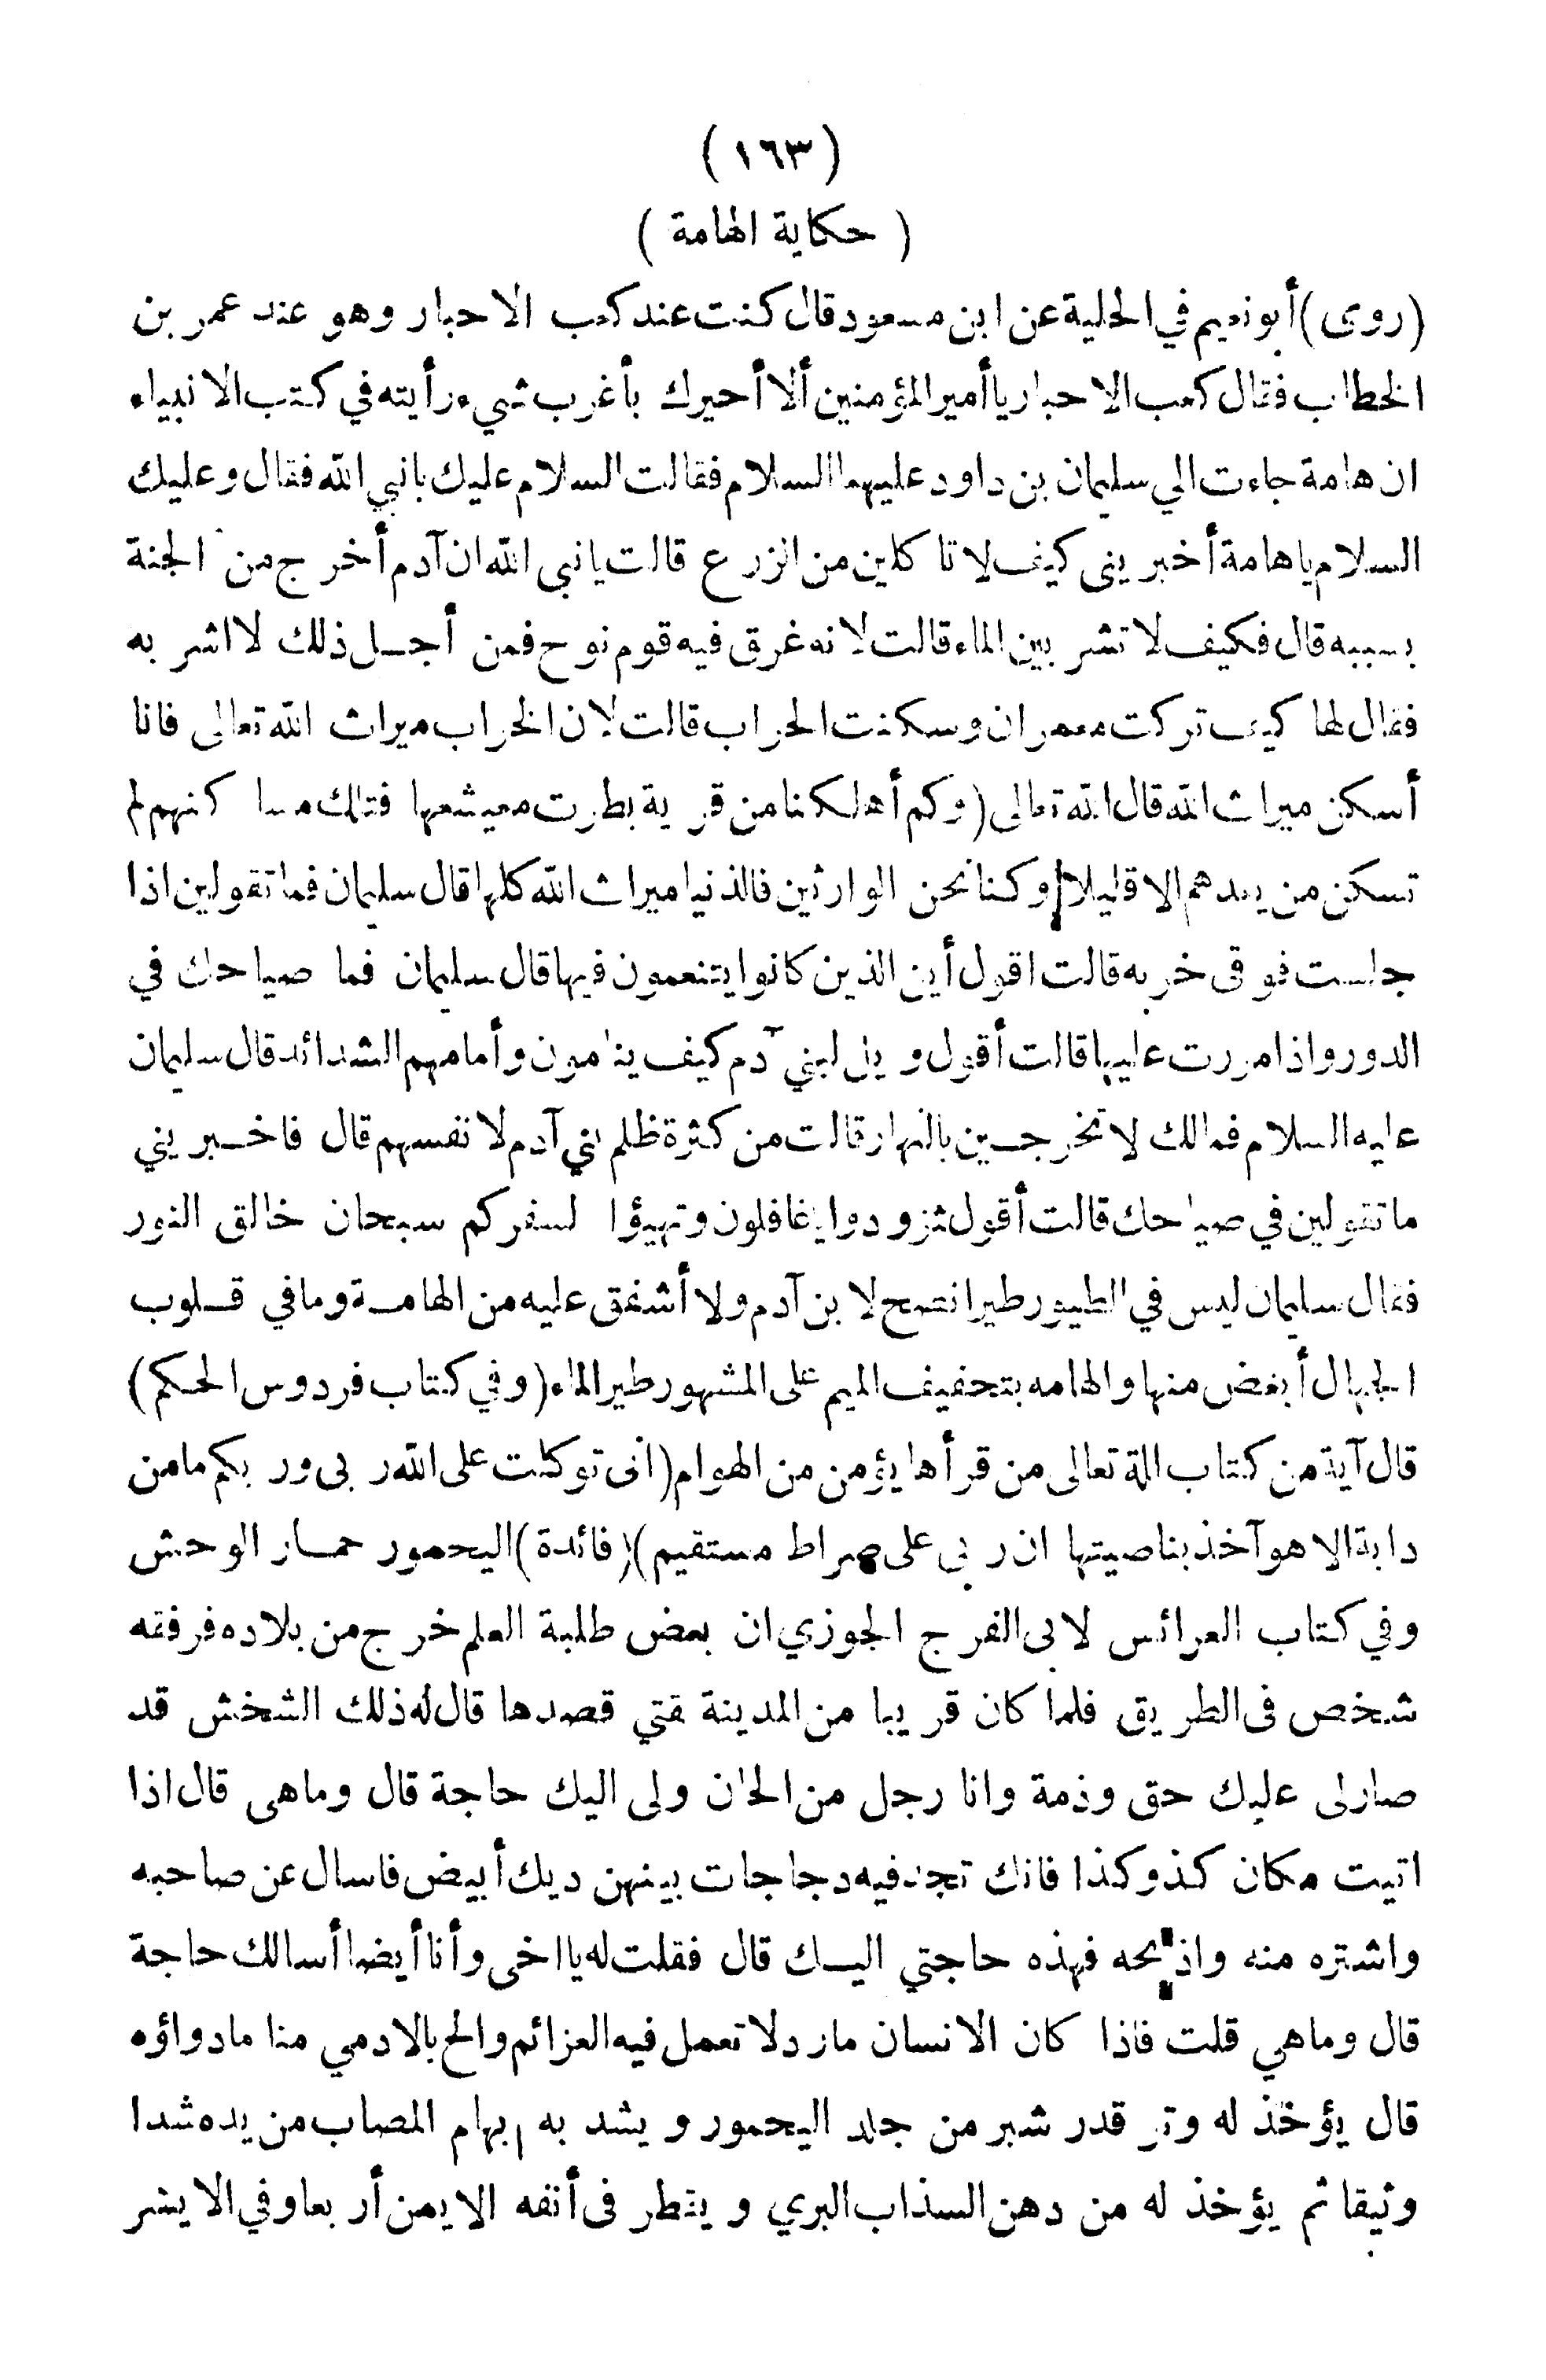 (١٦٣)
( حكاية الهامة )
(روى) أبو نعيم في الحلية عن ابن مسعود قال كنت عند كعب الاحبار وهو عند عمر بن
الخطاب فقال كعب الاحبار يا أمير المؤمنين ألا أحيرك بأغرب شيء رأيته في كتب الانبياء
ان هامة جاءت الي سليمان بن داود عليهما السلام فقالت السلام عليك يانبي الله فقال وعليك
السلام ياهامة أخبريني كيف لا تا كلين من الزرع قالت يا نبي الله ان آدم أخرج من الجنة
بسببه قال فكيف لا تشربين الماء قالت لانه غرق فيه قوم نوح فمن أجل ذلك لااشربه
فقال لها كيف تركت معمران وسكنت الحراب قالت لان الخراب ميراث الله تعالى فانا
أسكن ميراث الله قال الله تعالى (وكم أهلكنا من قرية بطرت معيشعها فتلك مسا كنهم لم
تسكن من بعدهم الا قليلا) وكنا نحن الوارثين فالذنيا ميراث الله كلها قال سليمان فما تقولين اذا
جلست فوق خربه قالت اقول أين الذين كانوا يتنعمون فيها قال سليمان فما صياحك في
الدور واذا مررت عليها قالت أقول ويل لبني آدم كيف ينامون وأمامهم الشدائد قال سليمان
عليه السلام فمالك لا تخرجين بالنهار قالت من كثرة ظلم بني آدم لا نفسهم قال فاخبريني
ما تقولين في صياحك قالت أقول تزودوا ياغافلون وتهيؤا لسفركم سبحان خالق النور
فقال سليمان ليس في الطيور طير انصح لا بن آدم ولا أشفق عليه من الهامة وما في قلوب
الجهال أبغض منها والهامه بتحفيف الميم على المشهور طير الماء (وفي كتاب فردوس الحكم)
قال آية من كتاب الله تعالى من قرأها يؤمن من الهوام (انى توكلت على الله ربى وربكم مامن
دابة الا هو آخذ بناصيتها ان ربي على صراط مستقيم) (فائدة) اليحمور حمار الوحش
وفي كتاب العرائس لابى الفرج الجوزي ان بعض طلبة العلم خرج من بلاده فرفقه
شخص فى الطريق فلما كان قريبا من المدينة قتي قصدها قال له ذلك الشخش قد
صارلى عليك حق وذمة وانا رجل من الحان ولى اليك حاجة قال وماهى قال اذا
اتيت مكان كذو كذا فانك تجد فيه دجاجات بينهن ديك أبيض فاسال عن صاحبه
واشتره منه واذبحه فهذه حاجتي اليك قال فقلت له يااخى وأنا أيضا أسالك حاجة
قال وماهي قلت فاذا كان الانسان مارد لا تعمل فيه العزائم والح بالادمي منا مادواؤه
قال يؤخذ له وتر قدر شبر من جلد اليحمور ويشد به ابهام المصاب من يده شدا
وثيقا ثم يؤخذ له من دهن السذاب البري ويقطر فى أنفه الايمن أربعا وفي الايشر